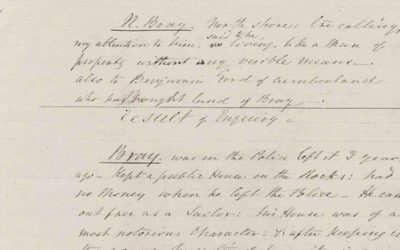 N. Bray. North shore: Ext calling
my attention to him: said to be living like a Man of
property without any visible means –
also to Benjamin Ford of Cumberland
who has bought land of Bray –.
Result of Enquiry –
Bray. was in the Police left it 3 years
ago – Kept a public House on the Rocks: had
no Money when he left the Police – He came
out free as a Sailor: his House was of a
most notorious Character: & after keeping it